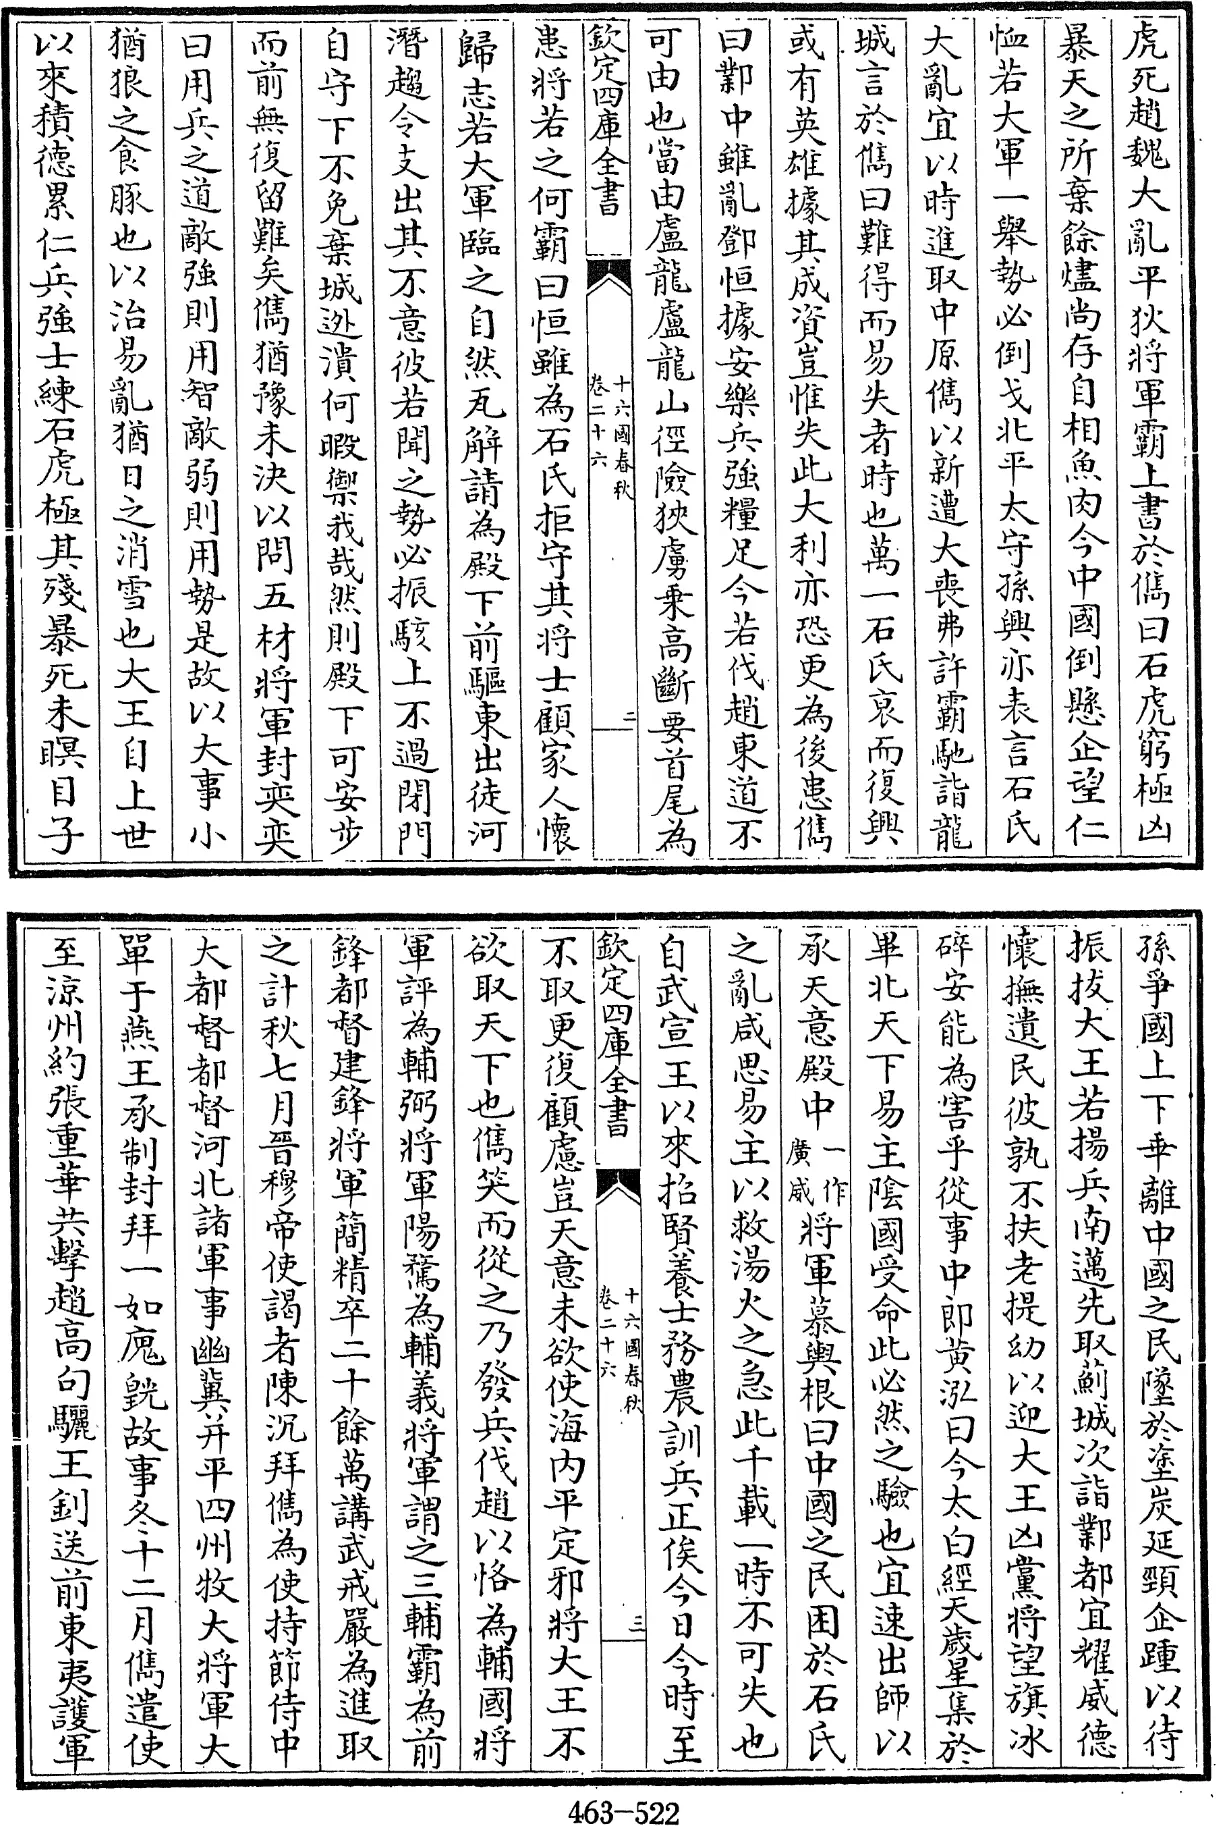 虎死趙魏大亂平狄將軍霸上書於儁曰石虎窮極凶
暴天之所棄餘燼尚存自相魚肉今中國倒懸企望仁
恤若大軍一舉勢必倒戈北平太守孫興亦表言石氏
大亂宜以時進取中原儁以新遭大喪弗許霸馳詣龍
城言於儁曰難得而易失者時也萬一石氏衰而復興
或有英雄據其成資豈惟失此大利亦恐更為後患儁
曰鄴中雖亂鄧恒據安樂兵強糧足今若伐趙東道不
可由也當由盧龍盧龍山徑險狹虜乗高斷要首尾為
欽定四庫全書
十六國春秋
卷二十六
二
患將若之何霸曰恒雖為石氏拒守其將士顧家人懷
歸志若大軍臨之自然瓦解請為殿下前驅東出徒河
潛趨令支出其不意彼若聞之勢必振駭上不過閉門
自守下不免棄城迯潰何暇禦我哉然則殿下可安步
而前無復留難矣儁猶豫未決以問五材將軍封奕奕
曰用兵之道敵強則用智敵弱則用勢是故以大事小
猶狼之食豚也以治易亂猶日之消雪也大王自上世
以來積德累仁兵強士練石虎極其殘暴死未瞑目子
孫爭國上下乖離中國之民墜於塗炭延頸企踵以待
振拔大王若揚兵南邁先取薊城次詣鄴都宜耀威德
懷撫遺民彼孰不扶老提幼以迎大王凶黨將望旗冰
碎安能為害乎從事中郎黃泓曰今太白經天歲星集於
畢北天下易主陰國受命此必然之驗也宜速出師以
承天意殿中一作廣威將軍慕輿根曰中國之民困於石氏
之亂咸思易主以救湯火之急此千載一時不可失也
自武宣王以來招賢養士務農訓兵正俟今日今時至
欽定四庫全書
十六國春秋
卷二十六
三
不取更復顧慮豈天意未欲使海內平定邪將大王不
欲取天下也儁笑而從之乃發兵伐趙以恪為輔國將
軍評為輔弼將軍陽騖為輔義將軍謂之三輔霸為前
鋒都督建鋒將軍簡精卒二十餘萬講武戒嚴為進取
之計秋七月晉穆帝使謁者陳沉拜儁為使持節侍中
大都督都督河北諸軍事幽冀并平四州牧大將軍大
單于燕王承制封拜一如廆皝故事冬十二月儁遣使
至涼州約張重華共擊趙高句驪王釗送前東夷護軍
463-522